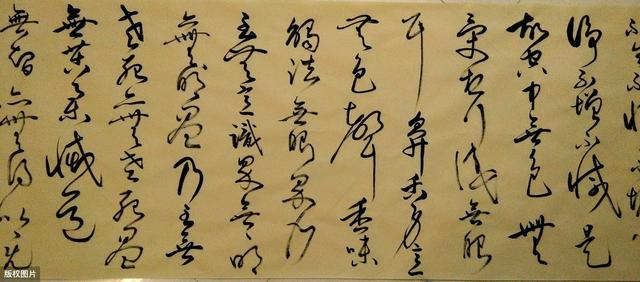 不生不滅不垢不
淨不增不減是
故空中無色無
受想行識無眼
耳鼻舌身意
無色聲香味
觸法無眼界乃
至無意識界無明
無明盡乃至無
老死亦無老死盡
無苦集滅道
無智亦無得以無
版权图片